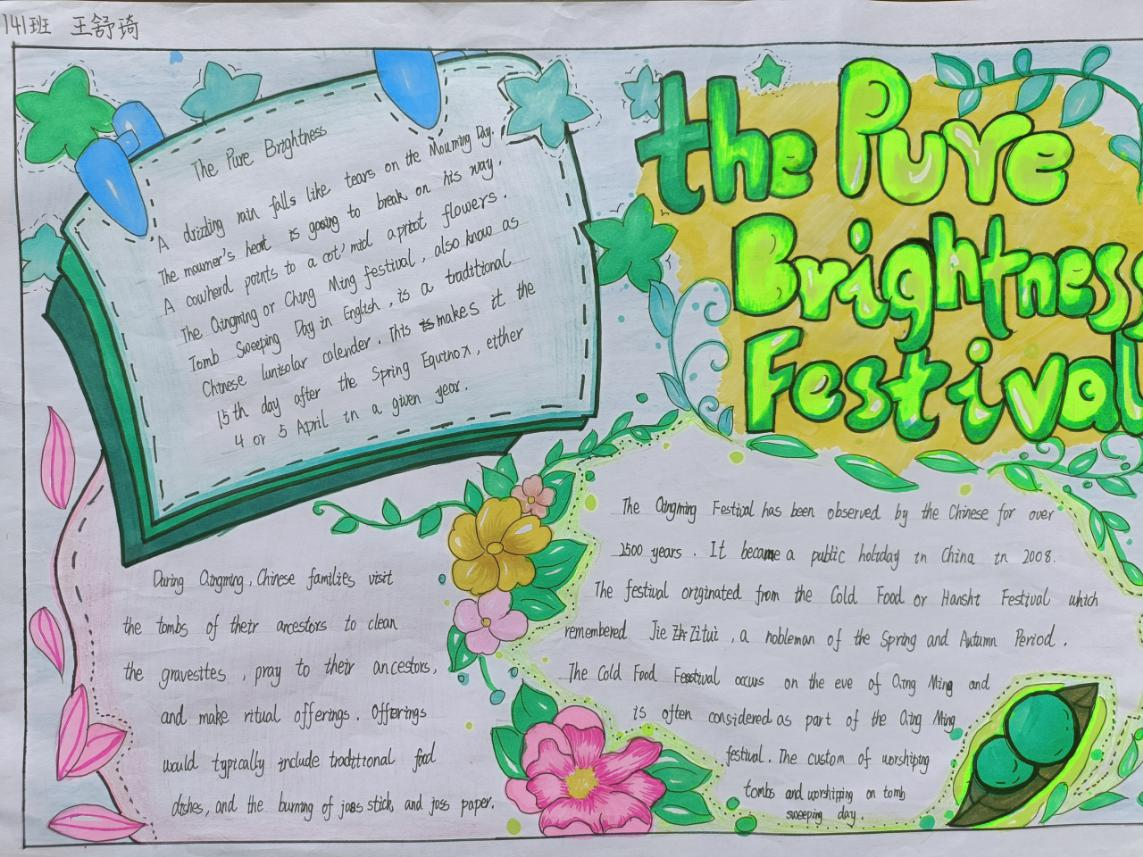 141班 王舒琦
the Pure
Brightness
Festival
The Pure Brightness
A drizzling rain falls like tears on the Mourning Day.
The mourner's heart is gooing to break on his way.
A cowherd points to a cot' mid apricot flowers.
The Qingming or Ching Ming festival, also know as
Tomb Sweeping Day in English, is a traditional
Chinese lunisolar calender. This is makes it the
15th day after the Spring Equinox, either
4 or 5 April in a given year.
During Qingming, Chinese families visit
the tombs of their ancestors to clean
the gravesites, pray to their ancestors,
and make ritual offerings. Offerings
would typically include traditional food
dishes, and the burning of joss stick and joss paper.
The Qingming Festival has been observed by the Chinese for over
2500 years. It became a public holiday in China in 2008.
The festival originated from the Cold Food or Hanshi Festival which
remembered Jie Zitui, a nobleman of the Spring and Autumn Period.
The Cold Food Festival occurs on the eve of Qing Ming and
is often considered as part of the Qing Ming
festival. The custom of worshiping
tombs and worshipping on tomb
sweeping day